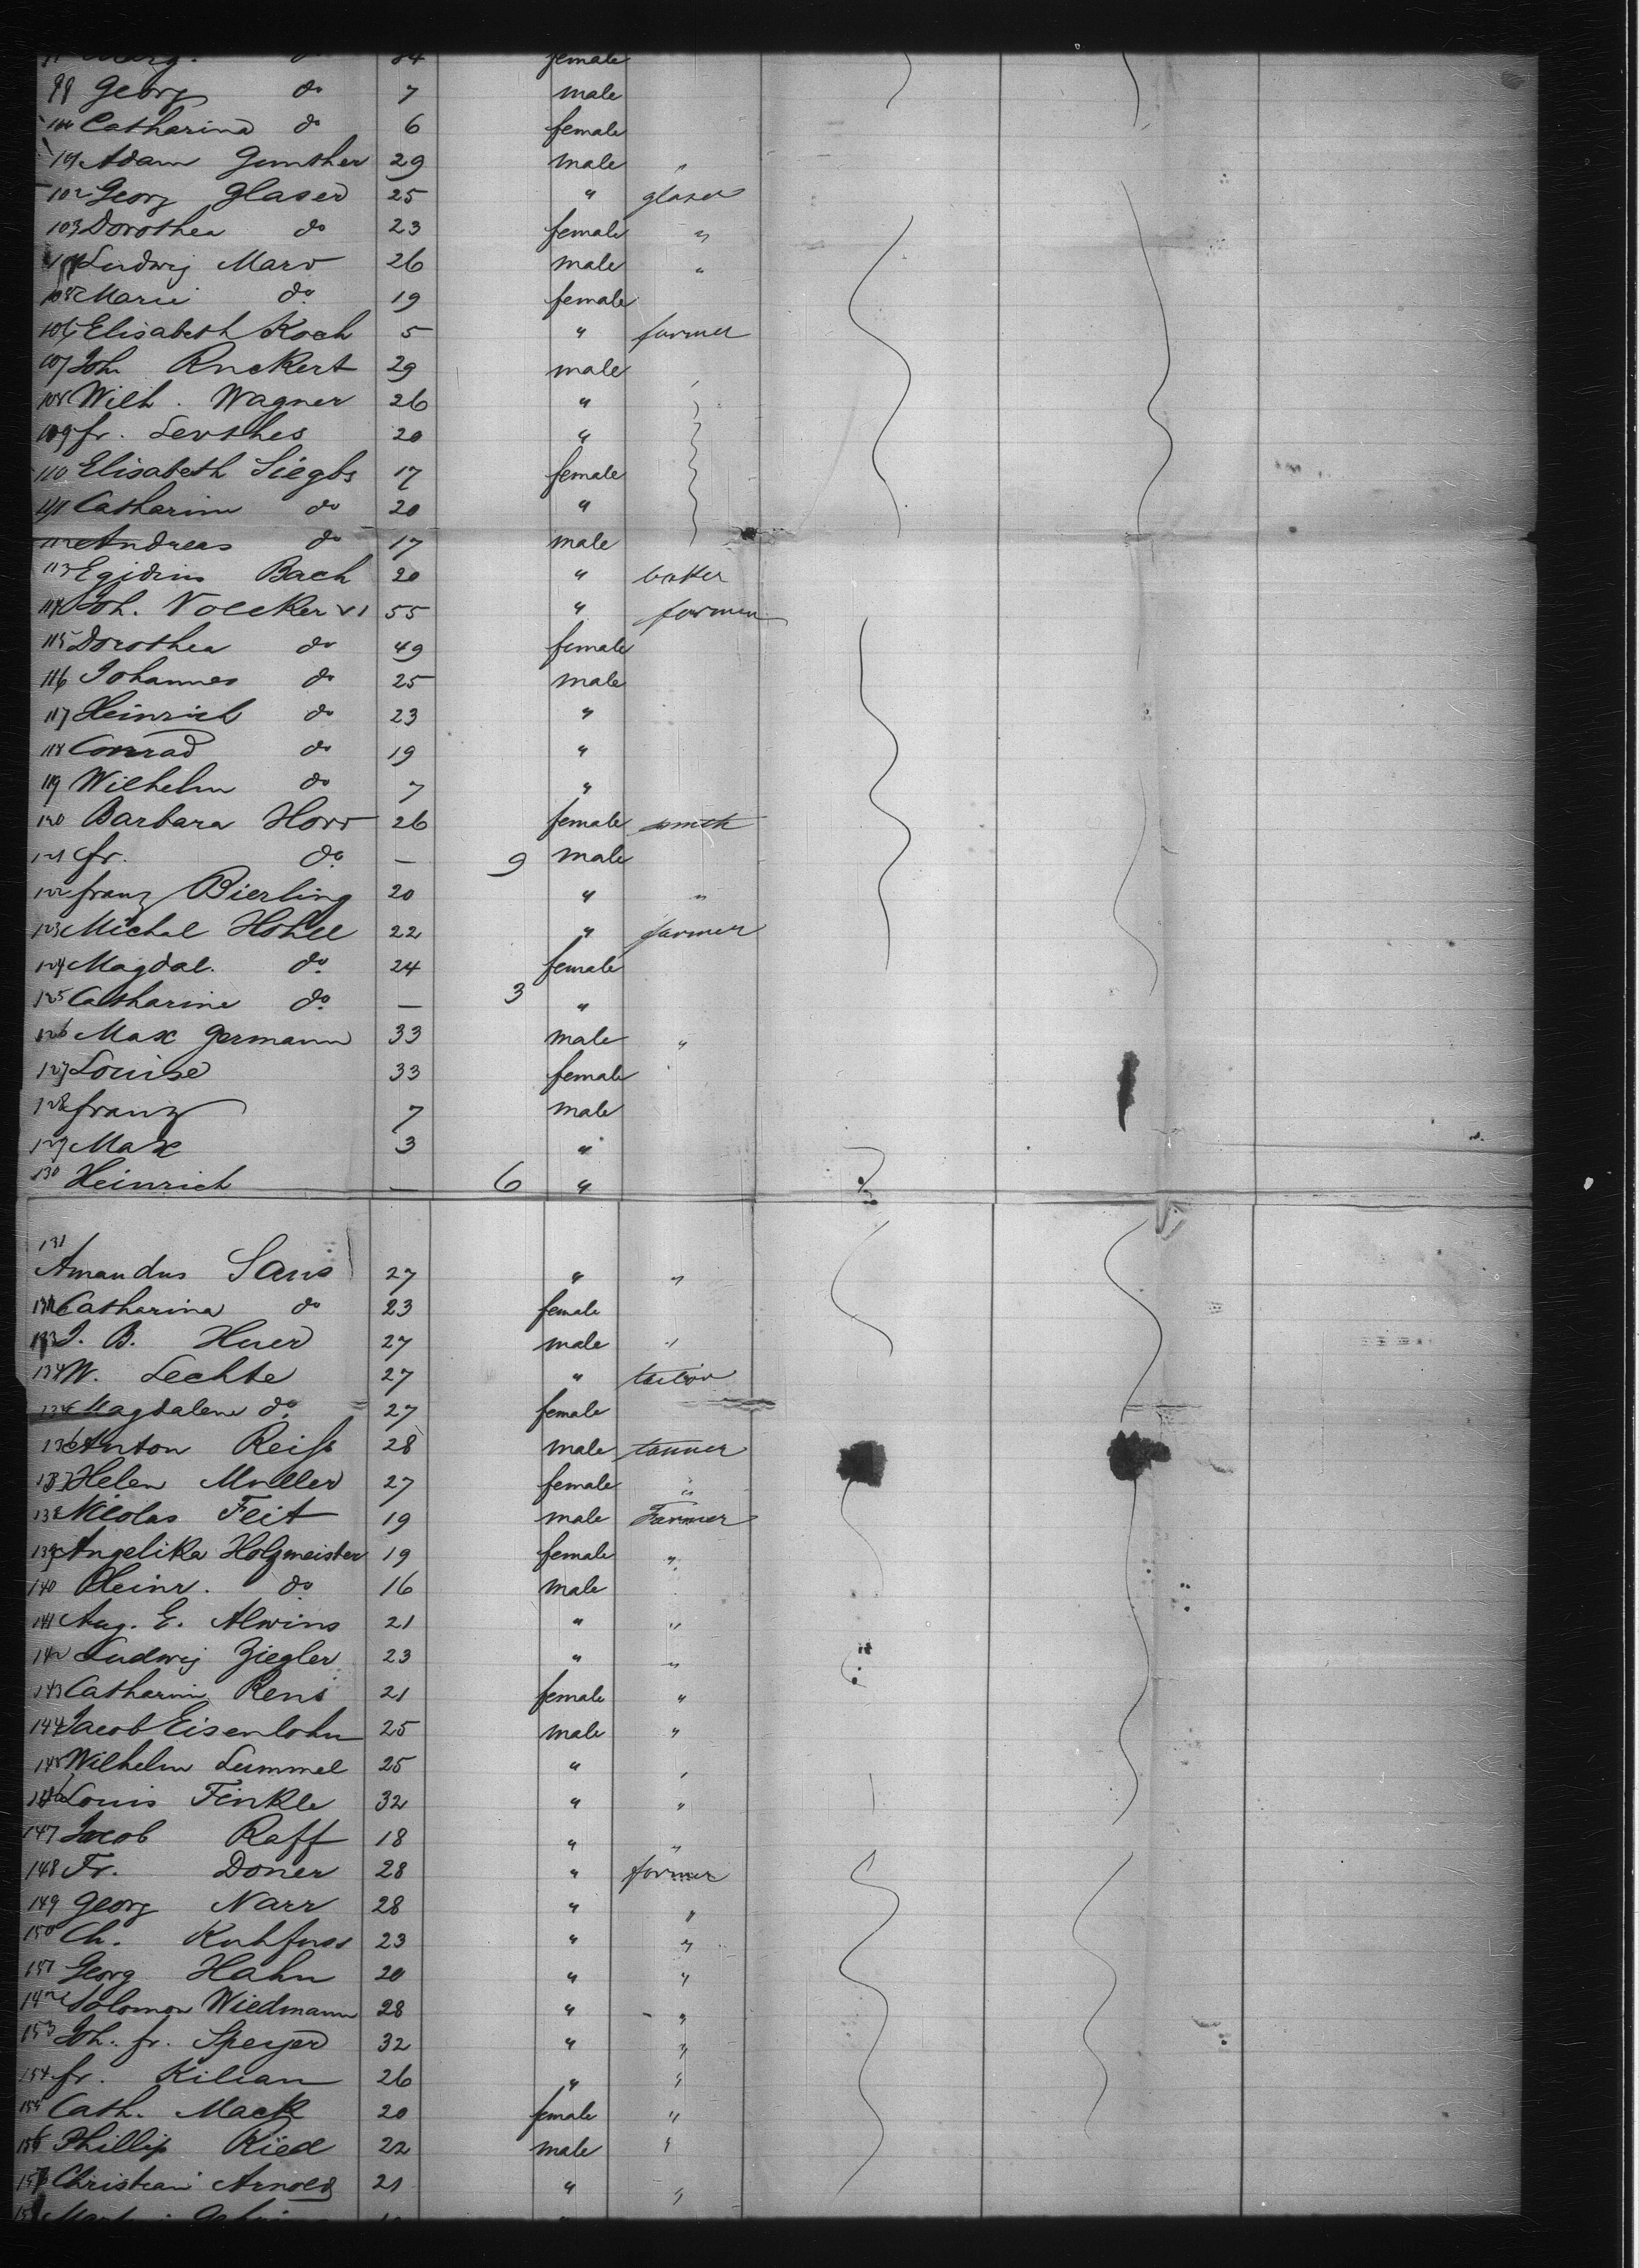 female
99 Georg do 7 male
100 Catharina do 6 female
101 Adam Gunther 29 male "
102 Georg Glaser 25 " glaser
103 Dorothea do 23 female "
104 Ludwig Marv 26 male "
105 Marie do 19 female
106 Elisabeth Koch 5 " farmer
107 Joh. Ruckert 29 male
108 Wilh. Wagner 26 "
109 fr. 20 "
110 Elisabeth 17 female
111 Catharine do 20 "
112 Andreas do 17 male
113 Egidius Bach 20 " baker
114 Joh. Voelker VI 55 " farmer
115 Dorothea do 49 female
116 Johannes do 25 male
117 Heinrich do 23 "
118 Conrad do 19 "
119 Wilhelm do 7 "
120 Barbara Horr 26 female smith
121 fr. do — 9 male
122 franz Bierling 20 " "
123 Michel Hohll 22 " farmer
124 Magdal. do 24 female
125 Catharine do — 3 "
126 Max Germann 33 male "
127 Louise 33 female
128 franz 7 male
129 Max 3 "
130 Heinrich — 6 "
131
Amandus Sans 27 " "
132 Catharina do 23 female
133 J. B. Huer 27 male "
134 W. Lechte 27 " tailor
135 Magdalene do 27 female
136 Anton Reiß 28 male tanner
137 Helen Muller 27 female "
138 Nicolas Feit 19 male Farmer
139 Angelika Holzmeister 19 female "
140 Heinr. do 16 male
141 Aug. E. Alwins 21 " "
142 Ludwig Ziegler 23 " "
143 Catharine Rens 21 female "
144 Jacob Eisenlohn 25 male "
145 Wilhelm Lummel 25 " "
146 Louis Finkle 32 " "
147 Jacob Raff 18 " "
148 Fr. Doner 28 " farmer
149 Georg Narr 28 " "
150 Ch. Kuhfuss 23 " "
151 Georg Hahn 20 " "
142 Solomon Wiedmann 28 " "
153 Joh. fr. Speyer 32 " "
154 fr. Kilian 26 " "
155 Cath. Mack 20 female "
156 Phillip Ried 22 male "
157 Christian Arnold 21 " "